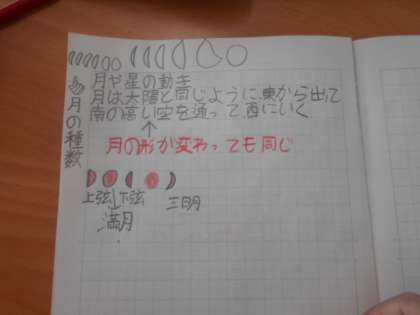 月の種数
月や星の動き
月は太陽と同じように、東から出て
南の高い空を通って、西にいく
月の形が変わっても同じ
上弦 下弦 三日月
満月